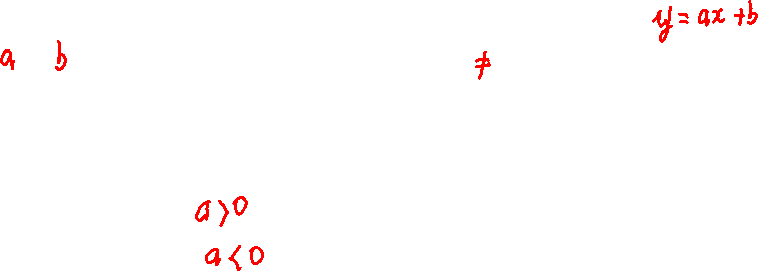 y = ax + b
a b ≠
a > 0
a < 0